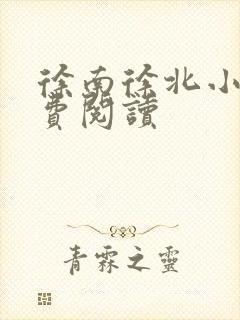 徐南徐北小
費閱讀
青霖之靈